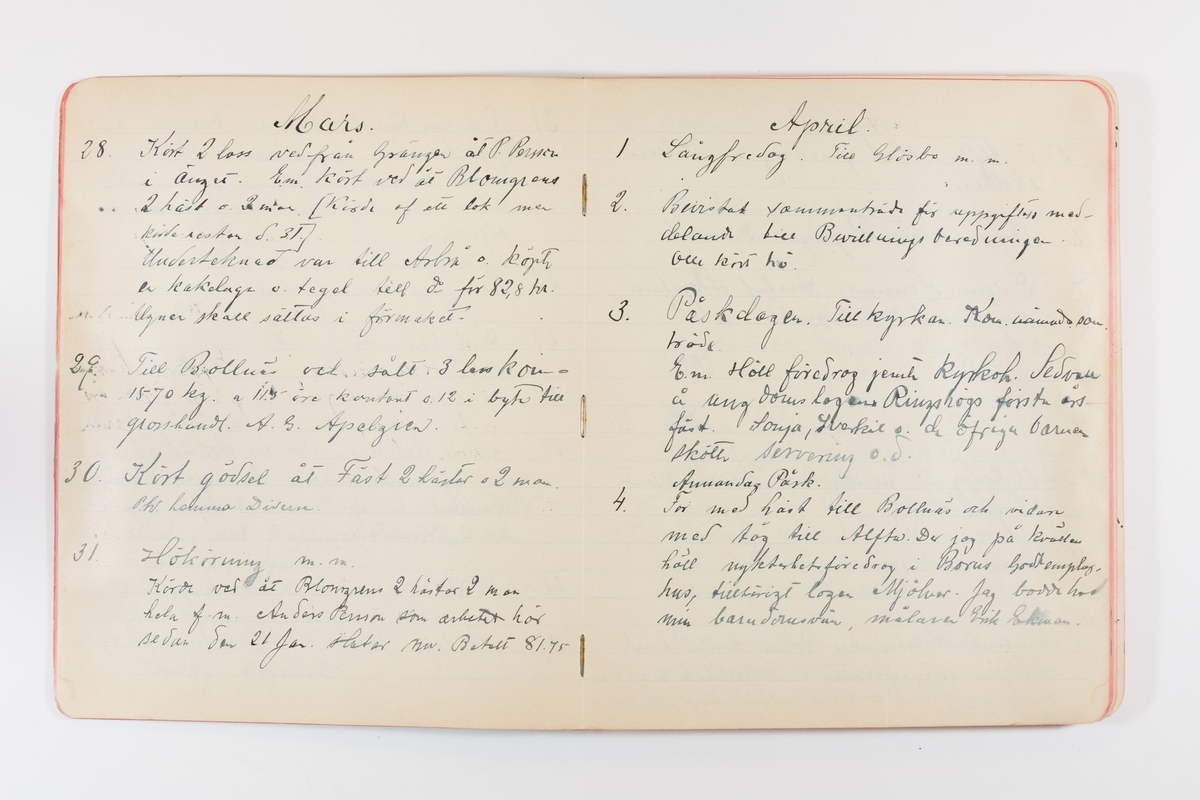 Mars.
28. Kört 2 lass ved från Grängen åt P. Persson
i Änget. E.m. kört ved åt Blomgrens
2 häst o. 2 man [Körde af ett lok mer
körde resten d. 31.]
Undertecknad var till Arbrå o. köpte
en kakelugn o. tegel till d:o för 82,8 kr.
Ugnen skall sättas i förmaket.
29. Till Bollnäs och sålt 3 lass
1570 kg. a 11.5 öre kontant o. 12 i byte till
grosshandl. A. G. Apelgren.
30. Kört gödsel åt Fäst 2 hästar o 2 man.
hemma Diverse.
31. Hökörning m.m.
Körde ved åt Blomgrens 2 hästar 2 man
hela f.m. Anders Persson som arbetet här
sedan den 21 Jan. slutar nu. Betalt 81.75
April.
1 Långfredag. Till Glösbo m. m.
2. Bevistat sammanträde för uppgifters med-
delande till Bevillningsberedningen.
kört hö.
3. Påskdagen. Till kyrkan. Kom. nämnds sam.
träde.
E.m. Höll föredrag jemte kyrkoh. Sedvall
å ungdomslogens Ringhögs första års-
fäst. Sonja, Sverkil o. de öfriga barnen
skötte servering o. d.
Annandag Påsk.
4. For med häst till Bollnäs och vidare
med tåg till Alfta. Der jag på kvällen
höll nykterhetsföredrag i Borus Godtemplar-
hus, tillhörigt logen Mjölner. Jag bodde hos
min barndomsvän, målaren Erik Ekman.